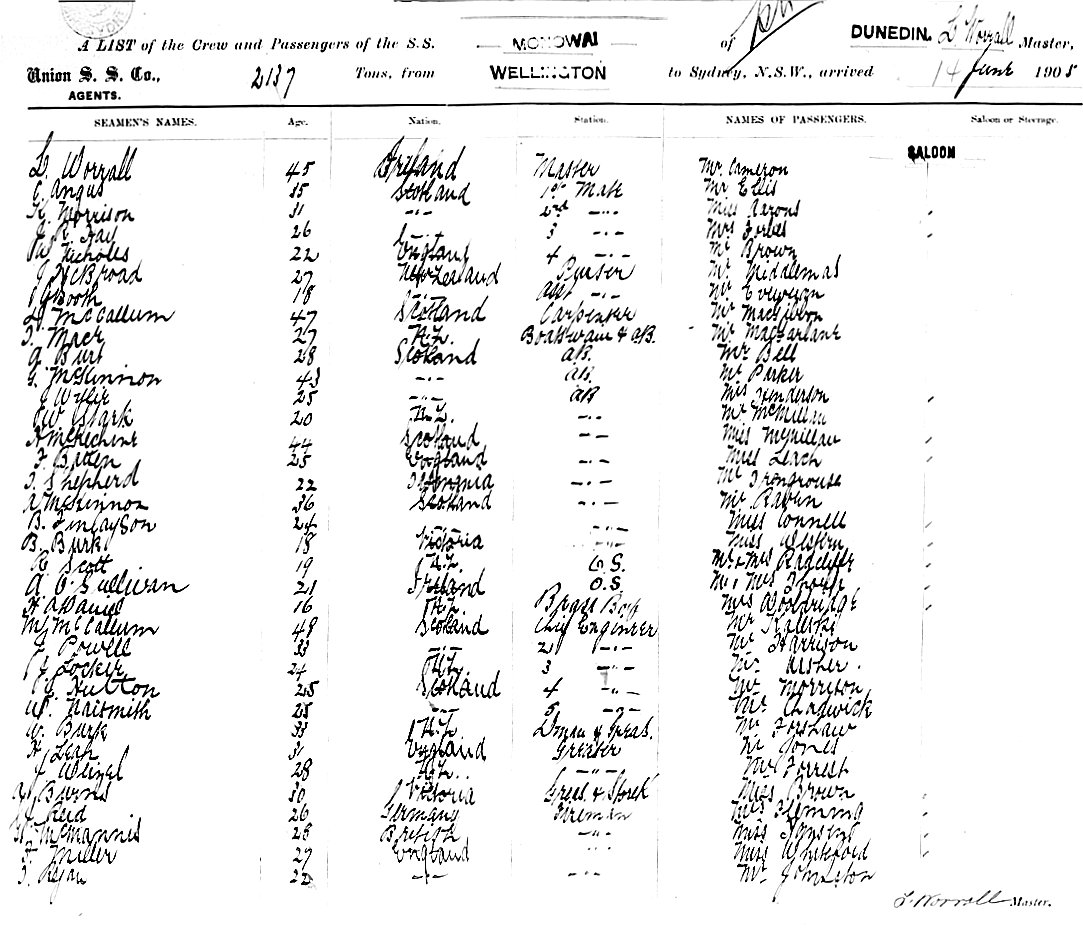 A LIST of the Crew and Passengers of the S.S. MONOWAI of DUNEDIN. L Worrall Master,
Union S. S. Co., 2137 Tons, from WELLINGTON to Sydney, N.S.W., arrived 14 June 1905
AGENTS.
SEAMEN'S NAMES. Age. Nation. Station. NAMES OF PASSENGERS. Saloon or Steerage.
SALOON
L. Worrall 45 Ireland Master Mr. Cameron
E. Angus 35 Scotland 1st Mate Mr Ellis
Morrison 31 -"- 2nd -"- Miss Aarons
Hay 26 -"- 3 -"- Mrs Forbes
Nicholls 22 England 4 -"- Mr Brown
McBroad 27 New Zealand Purser Mr Middlemas
Booth 18 -"- Asst -"- Mr
McCallum 47 Scotland Carpenter Mr MacGibbon
T. Macr 27 N.Z. Boatswain & AB. Mr. MacFarlane
A Burt 28 Scotland AB. Mr Bell
G. McKinnon 43 -"- AB. Mr Parker
J Wylie 25 -"- AB Miss Henderson
W Stark 20 N.Z. -"- Mr McMillan
McKechnie 44 Scotland -"- Miss McMillan
F. Batten 25 England -"- Miss Leach
T. Shepherd 22 -"- Mr Irongrouse
A McKinnon 36 Scotland -"- Mr Raven
B. Finlayson 24 -"- -"- Miss Connell
B. Burk 18 Victoria -"- Miss Western
R Scott 19 N.Z. O.S. Mr & Mrs Radcliffe
A O'Sullivan 21 Ireland O.S. Mr & Mrs
H A Daniel 16 N.Z. Brass Boy Mrs Woolbridge
McCallum 48 Scotland Chief Engineer Mr Kaleski
Powell 33 -"- 2 -"- Mr Harrison
Locker 24 N.Z. 3 -"- Mr Usher.
Hutton 25 Scotland 4 -"- Mr Morrison
Naismith 25 -"- 5 -"- Mr Chadwick
Burk 33 N.Z. Dman & Greas. Mr Forshaw
Leah 31 England Greaser Mr Jones
Wenzel 28 N.Z. -"- Mr Forrest
Burns 30 Victoria Greas. & Storek Miss Brown
Reid 26 Germany Fireman Miss Fleming
McMannis 28 British -"- Miss
F. Miller 27 England -"- Miss Whiteford
T. Ryan 22 -"- -"- Mr Johnston
L Worrall Master.